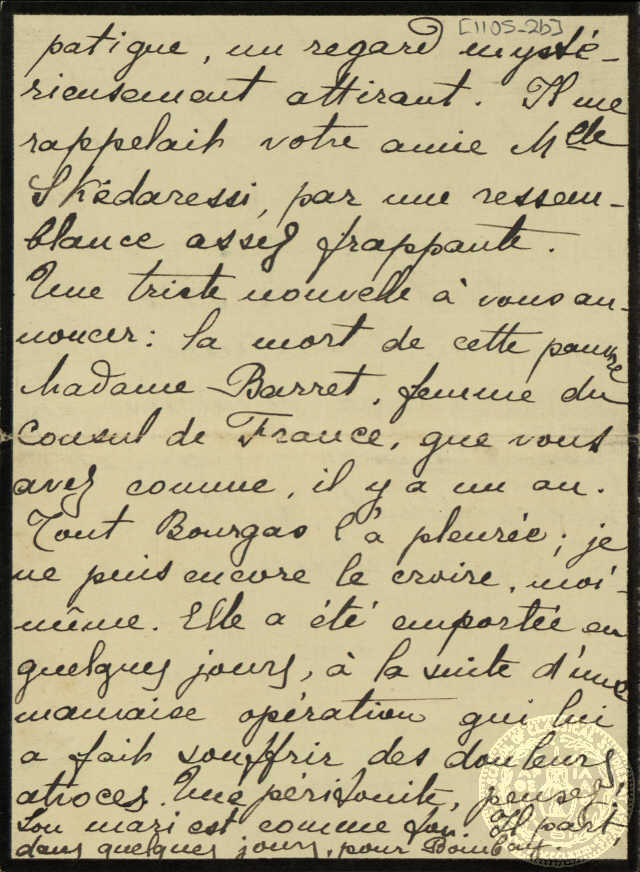 [1105-2b]
patique, un regard mysté-
rieusement attirant. Il me
rappelait votre amie Mlle
Skédaressi, par une ressem-
blance assez frappante.
Une triste nouvelle à vous an-
noncer: la mort de cette pauvre
Madame Barret, femme du
Consul de France, que vous
avez connue, il y a un an.
Tout Bourgas l'a pleurée; je
ne puis encore le croire, moi-
même. Elle a été emportée en
quelques jours, à la suite d'une
mauvaise opération qui lui
a fait souffrir des douleurs
atroces. Une péritonite, pensez!
Son mari est comme fou. Il part,
dans quelques jours, pour Bombay.